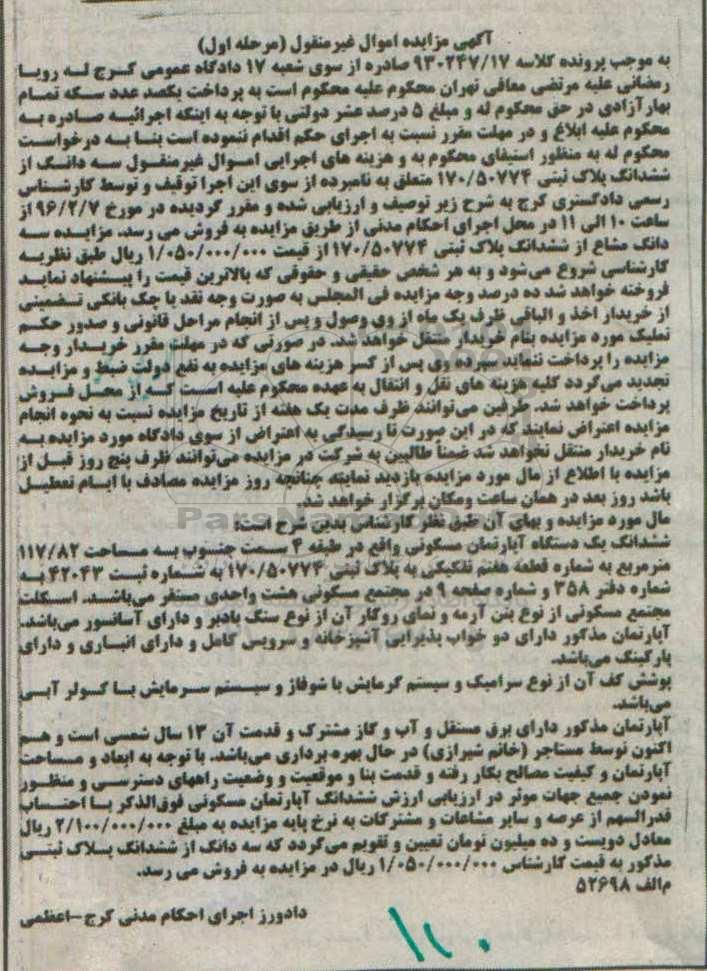 آگهی مزایده اموال غیرمنقول (مرحله اول)
به موجب پرونده کلاسه ۹۳۰۲۴۷/۱۷ صادره از سوی شعبه ۱۷ دادگاه عمومی کرج له رویا
رمضانی علیه مرتضی معافی تهران محکوم علیه محکوم است به پرداخت یکصد عدد سکه تمام
بهار آزادی در حق محکوم له و مبلغ ۵ درصد عشر دولتی با توجه به اینکه اجرائیه صادره به
محکوم علیه ابلاغ و در مهلت مقرر نسبت به اجرای حکم اقدام ننموده است بنا به درخواست
محکوم له به منظور استیفای محکوم به و هزینه های اجرایی اموال غیرمنقول سه دانگ از
ششدانگ پلاک ثبتی ۱۷۰/۵۰۷۷۴ متعلق به نامبرده از سوی این اجرا توقیف و توسط کارشناس
رسمی دادگستری کرج به شرح زیر توصیف و ارزیابی شده و مقرر گردیده در مورخ ۹۶/۲/۷ از
ساعت ۱۰ الی ۱۱ در محل اجرای احکام مدنی از طریق مزایده به فروش می رسد. مزایده سه
دانگ مشاع از ششدانگ پلاک ثبتی ۱۷۰/۵۰۷۷۴ از قیمت ۱/۰۵۰/۰۰۰/۰۰۰ ریال طبق نظریه
کارشناسی شروع می‌شود و به هر شخص حقیقی و حقوقی که بالاترین قیمت را پیشنهاد نماید
فروخته خواهد شد ده درصد وجه مزایده فی المجلس به صورت وجه نقد یا چک بانکی تضمینی
از خریدار اخذ و الباقی ظرف یک ماه از وی وصول و پس از انجام مراحل قانونی و صدور حکم
تملیک مورد مزایده بنام خریدار منتقل خواهد شد. در صورتی که در مهلت مقرر خریدار وجه
مزایده را پرداخت ننماید سپرده وی پس از کسر هزینه های مزایده به نفع دولت ضبط و مزایده
تجدید می‌گردد کلیه هزینه های نقل و انتقال به عهده محکوم علیه است که از محل فروش
پرداخت خواهد شد. طرفین می‌توانند ظرف مدت یک هفته از تاریخ مزایده نسبت به نحوه انجام
مزایده اعتراض نمایند که در این صورت تا رسیدگی به اعتراض از سوی دادگاه مورد مزایده به
نام خریدار منتقل نخواهد شد ضمناً طالبین به شرکت در مزایده می‌توانند ظرف پنج روز قبل از
مزایده با اطلاع از مال مورد مزایده بازدید نمایند چنانچه روز مزایده مصادف با ایام تعطیل
باشد روز بعد در همان ساعت ومکان برگزار خواهد شد.
مال مورد مزایده و بهای آن طبق نظر کارشناس بدین شرح است:
ششدانگ یک دستگاه آپارتمان مسکونی واقع در طبقه ۴ سمت جنوب به مساحت ۱۱۷/۸۲
مترمربع به شماره قطعه هفتم تفکیکی به پلاک ثبتی ۱۷۰/۵۰۷۷۴ به شماره ثبت ۴۲۰۴۳ به
شماره دفتر ۳۵۸ و شماره صفحه ۹ در مجتمع مسکونی هشت واحدی مستقر می‌باشد. اسکلت
مجتمع مسکونی از نوع بتن آرمه و نمای روکار آن از نوع سنگ بادبر و دارای آسانسور می‌باشد.
آپارتمان مذکور دارای دو خواب پذیرایی آشپزخانه و سرویس کامل و دارای انباری و دارای
پارکینگ می‌باشد.
پوشش کف آن از نوع سرامیک و سیستم گرمایش با شوفاژ و سیستم سرمایش با کولر آبی
می‌باشد.
آپارتمان مذکور دارای برق مستقل و آب و گاز مشترک و قدمت آن ۱۳ سال شمسی است و هم
اکنون توسط مستاجر (خانم شیرازی) در حال بهره‌برداری می‌باشد. با توجه به ابعاد و مساحت
آپارتمان و کیفیت مصالح بکار رفته و قدمت بنا و موقعیت و وضعیت راههای دسترسی و منظور
نمودن جمیع جهات موثر در ارزیابی ارزش ششدانگ آپارتمان مسکونی فوق‌الذکر با احتساب
قدرالسهم از عرصه و سایر مشاعات و مشترکات به نرخ پایه مزایده به مبلغ ۲/۱۰۰/۰۰۰/۰۰۰ ریال
معادل دویست و ده میلیون تومان تعیین و تقویم می‌گردد که سه دانگ از ششدانگ پلاک ثبتی
مذکور به قیمت کارشناس ۱/۰۵۰/۰۰۰/۰۰۰ ریال در مزایده به فروش می رسد.
م‌الف ۵۲۶۹۸
دادورز اجرای احکام مدنی کرج-اعظمی